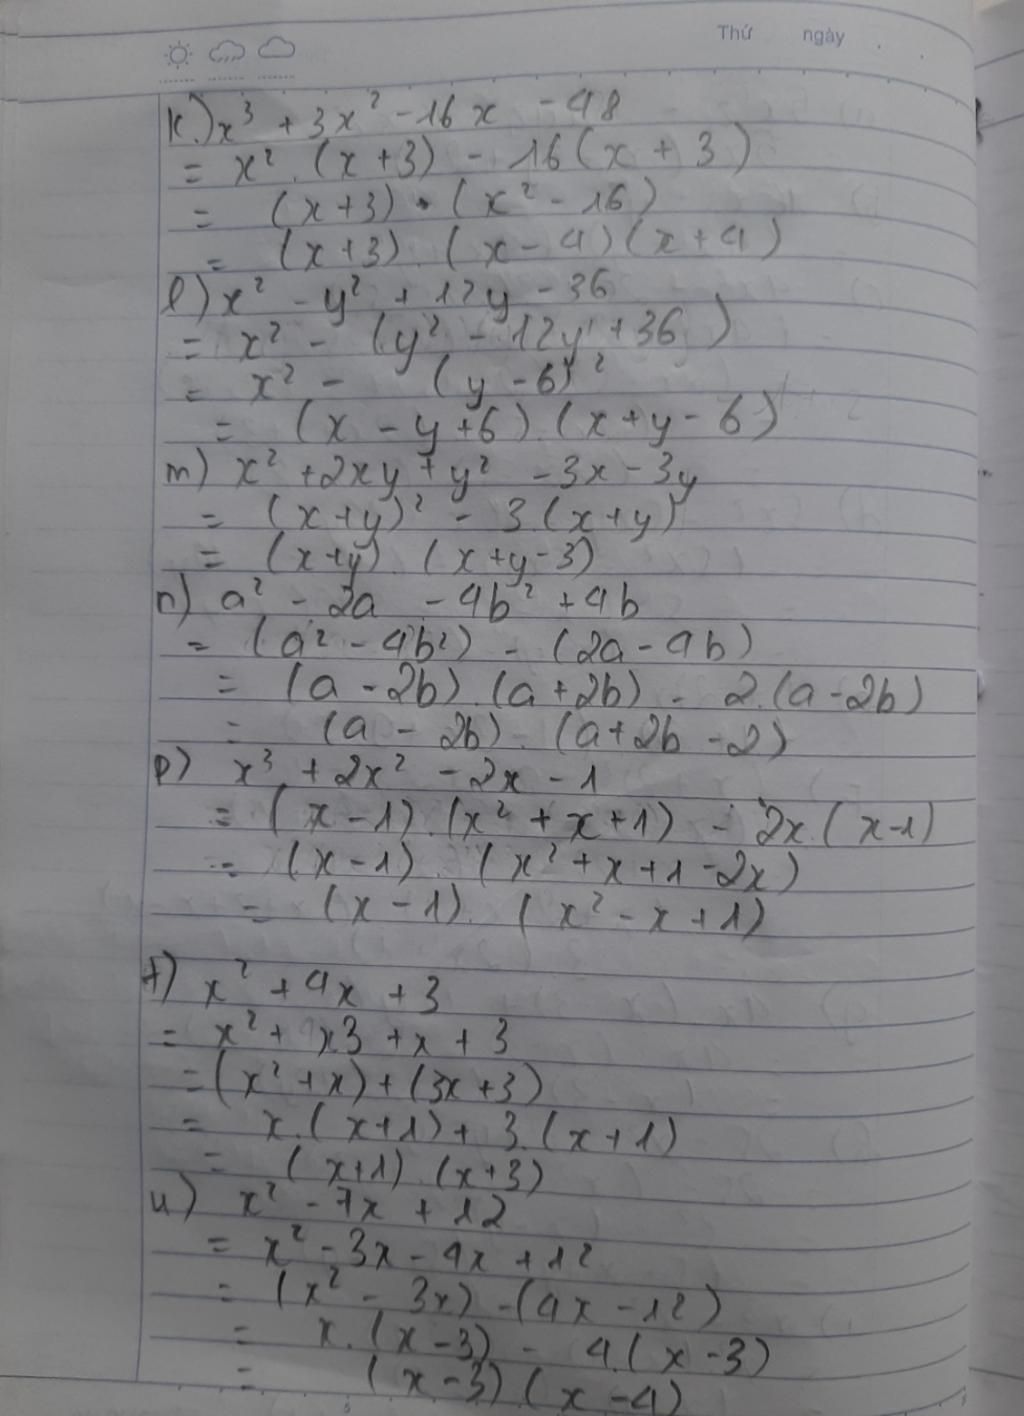 Thứ ngày
k.) x³ + 3x² - 16x - 48
= x² . (x + 3) - 16 (x + 3)
= (x + 3) . (x² - 16)
= (x + 3) . (x - 4) (x + 4)
l) x² - y² + 12y - 36
= x² - (y² - 12y + 36)
= x² - (y - 6)²
= (x - y + 6) . (x + y - 6)
m) x² + 2xy + y² - 3x - 3y
= (x + y)² - 3.(x + y)
= (x + y) . (x + y - 3)
n) a² - 2a - 4b² + 4b
= (a² - 4b²) - (2a - 4b)
= (a - 2b) . (a + 2b) - 2.(a - 2b)
= (a - 2b) . (a + 2b - 2)
p) x³ + 2x² - 2x - 1
= (x - 1) . (x² + x + 1) - 2x . (x - 1)
= (x - 1) . (x² + x + 1 - 2x)
= (x - 1) . (x² - x + 1)
t) x² + 4x + 3
= x² + x3 + x + 3
= (x² + x) + (3x + 3)
= x.(x + 1) + 3.(x + 1)
= (x + 1) . (x + 3)
u) x² - 7x + 12
= x² - 3x - 4x + 12
= (x² - 3x) - (4x - 12)
= x.(x - 3) - 4.(x - 3)
= (x - 3) (x - 4)